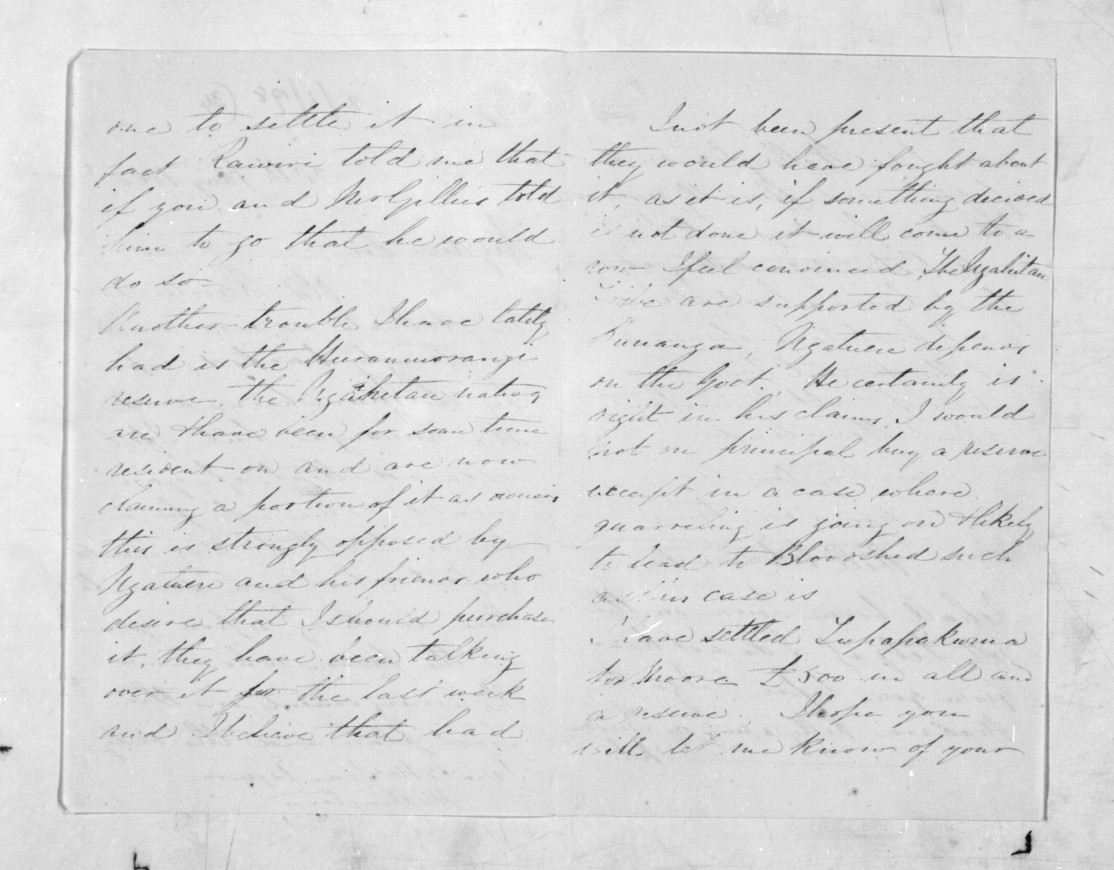 one to settle it in
fact Rawiri told me that
if you and McGillies told
him to go that he would
do so
Another trouble I have lately
had is the Huramorangi
reserve. the Ngahitau natives
are & have been for some time
resident on and are now
claiming a portion of it as owners
this is strongly opposed by
Ngatuere and his friends who
desire that I should purchase
it, they have been talking
over it for the last week
and I believe that had
I not been present that
they would have fought about
it, as it is, if something decided
is not done it will come to a
row I feel convinced, The Ngahitau
Tribe are supported by the
Runanga, Ngatuere depends
on the Govt. He certainly is
right in his claims, I would
not on principal buy a reserve
except in a case where
quarreling is going on & likely
to lead to Bloodshed such
as this case is
I have settled Tupapakurua
for Moore £500 in all and
a reserve. I hope you
will let me know of your